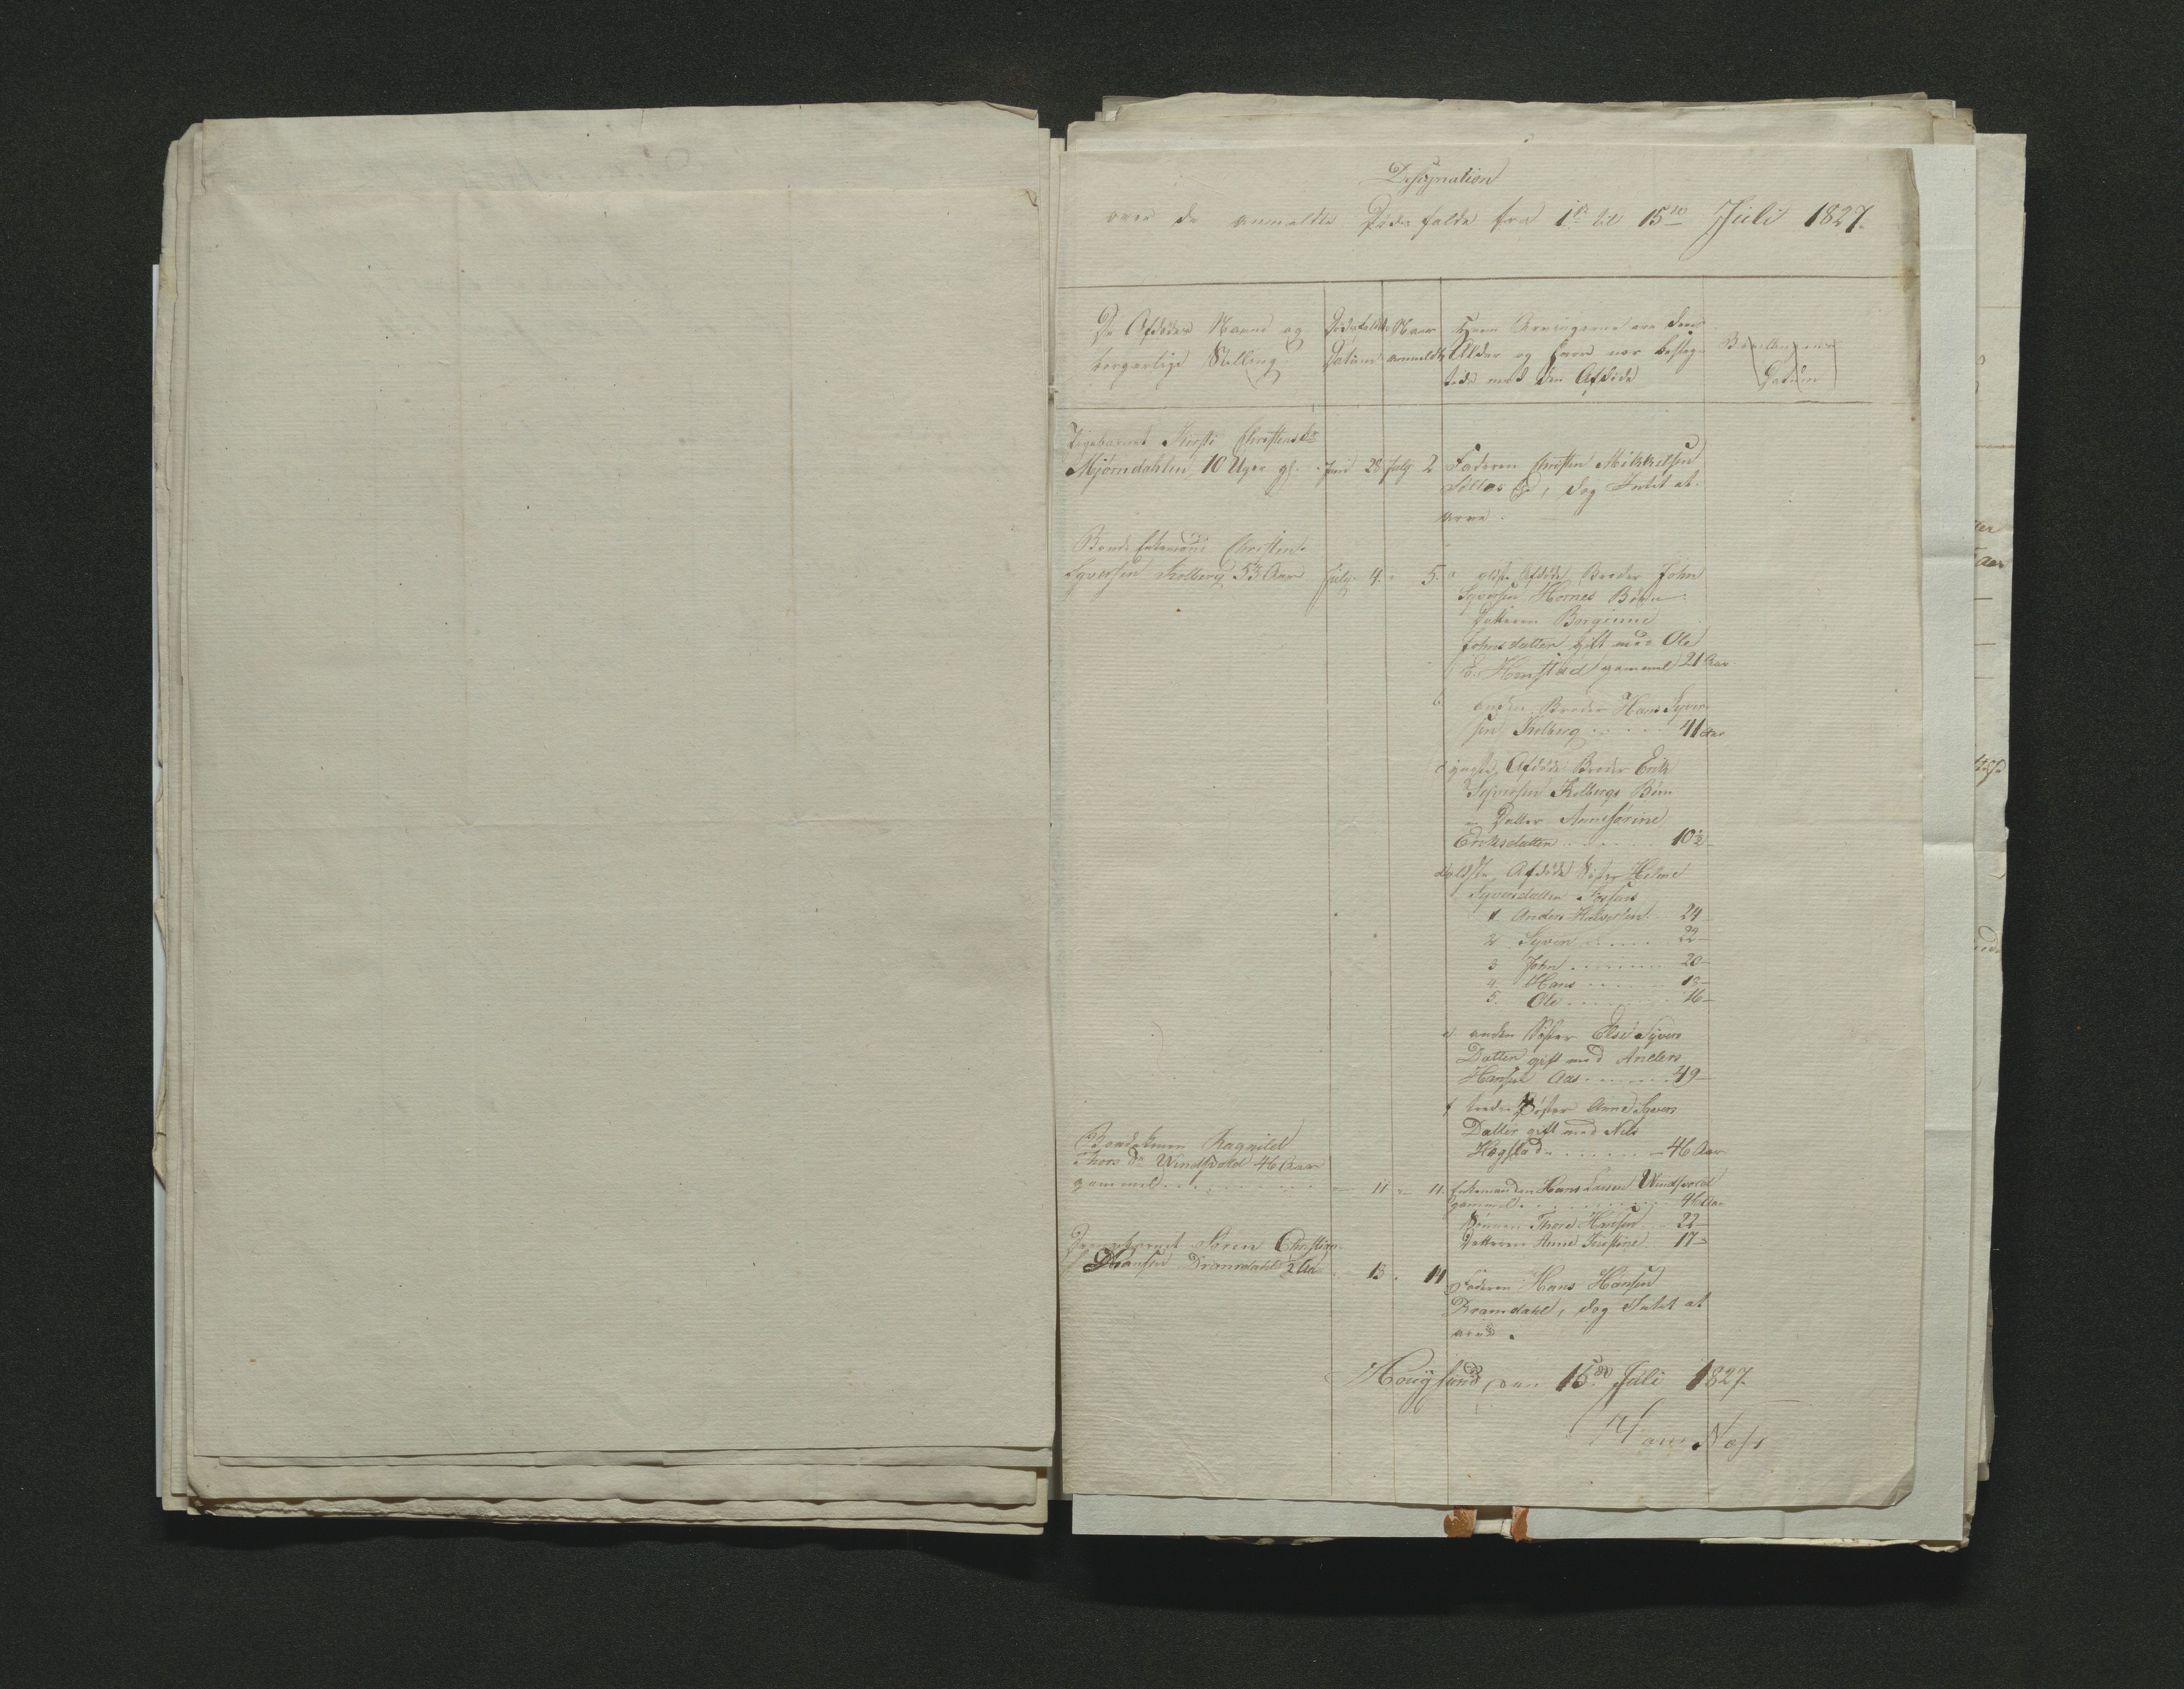 Designation
over de anmeldte Dødsfalde fra 1ste til 15de Juli 1827.
De Afdødes Navne og
borgerlige Stelling
Dødsfaldets
Datum
Naar
anmeldt
Hvem Arvingerne ere deres
Alder og hvor nær beslæg-
tede med den Afdøde
Datum
Pigebarnet Kirsti Christensdr
Mjøndahlen 10 Uger gl. Juni 28 July 2
Faderen Christen Mikkelsen
dog Intet at
arve.
Bonde Enkemand Christen
Syversen Kolberg 53 Aar July 4. 5.
a ældste Afdøde Broder John
Syversen Hornes Børn
Datteren Borginne
Johnsdatter gift med Ole
E. Henstad gammel 21 Aar
b. anden Broder Hans Syver-
sen Kolberg 41 Aar
c yngste Afdøde Broder Erik
Syversen Kolbergs Børn
Datter Annesørine
Eriksdatter 10½
d ældste Afdøde Søster Helene
Syversdatter
1 Anders Halvorsen 24
2 Syver 22
3 John 20
4. Hans 18
5. Ole 16
e anden Søster Else Syvers
Datter gift med Anders
Hansen Aas 49
f tredie Søster Anne Syvers
Datter gift med Nels
Hogstad 46 Aar
Bondekonen Ragnild
Thorsdr Windsvold 46 Aar
gammel 11 11.
Enkemanden Hans Larsen Windsvold
gammel 46 Aar
Sønnen Thore Hansen 22
Datteren Anne Kirstine 17
Drengebarnet Søren Christian
Hansen Dramdahl ½ Aar 13. 14
Faderen Hans Hansen
Dramdahl, dog Intet at
arve.
Hougsund, den 15de Juli 1827.